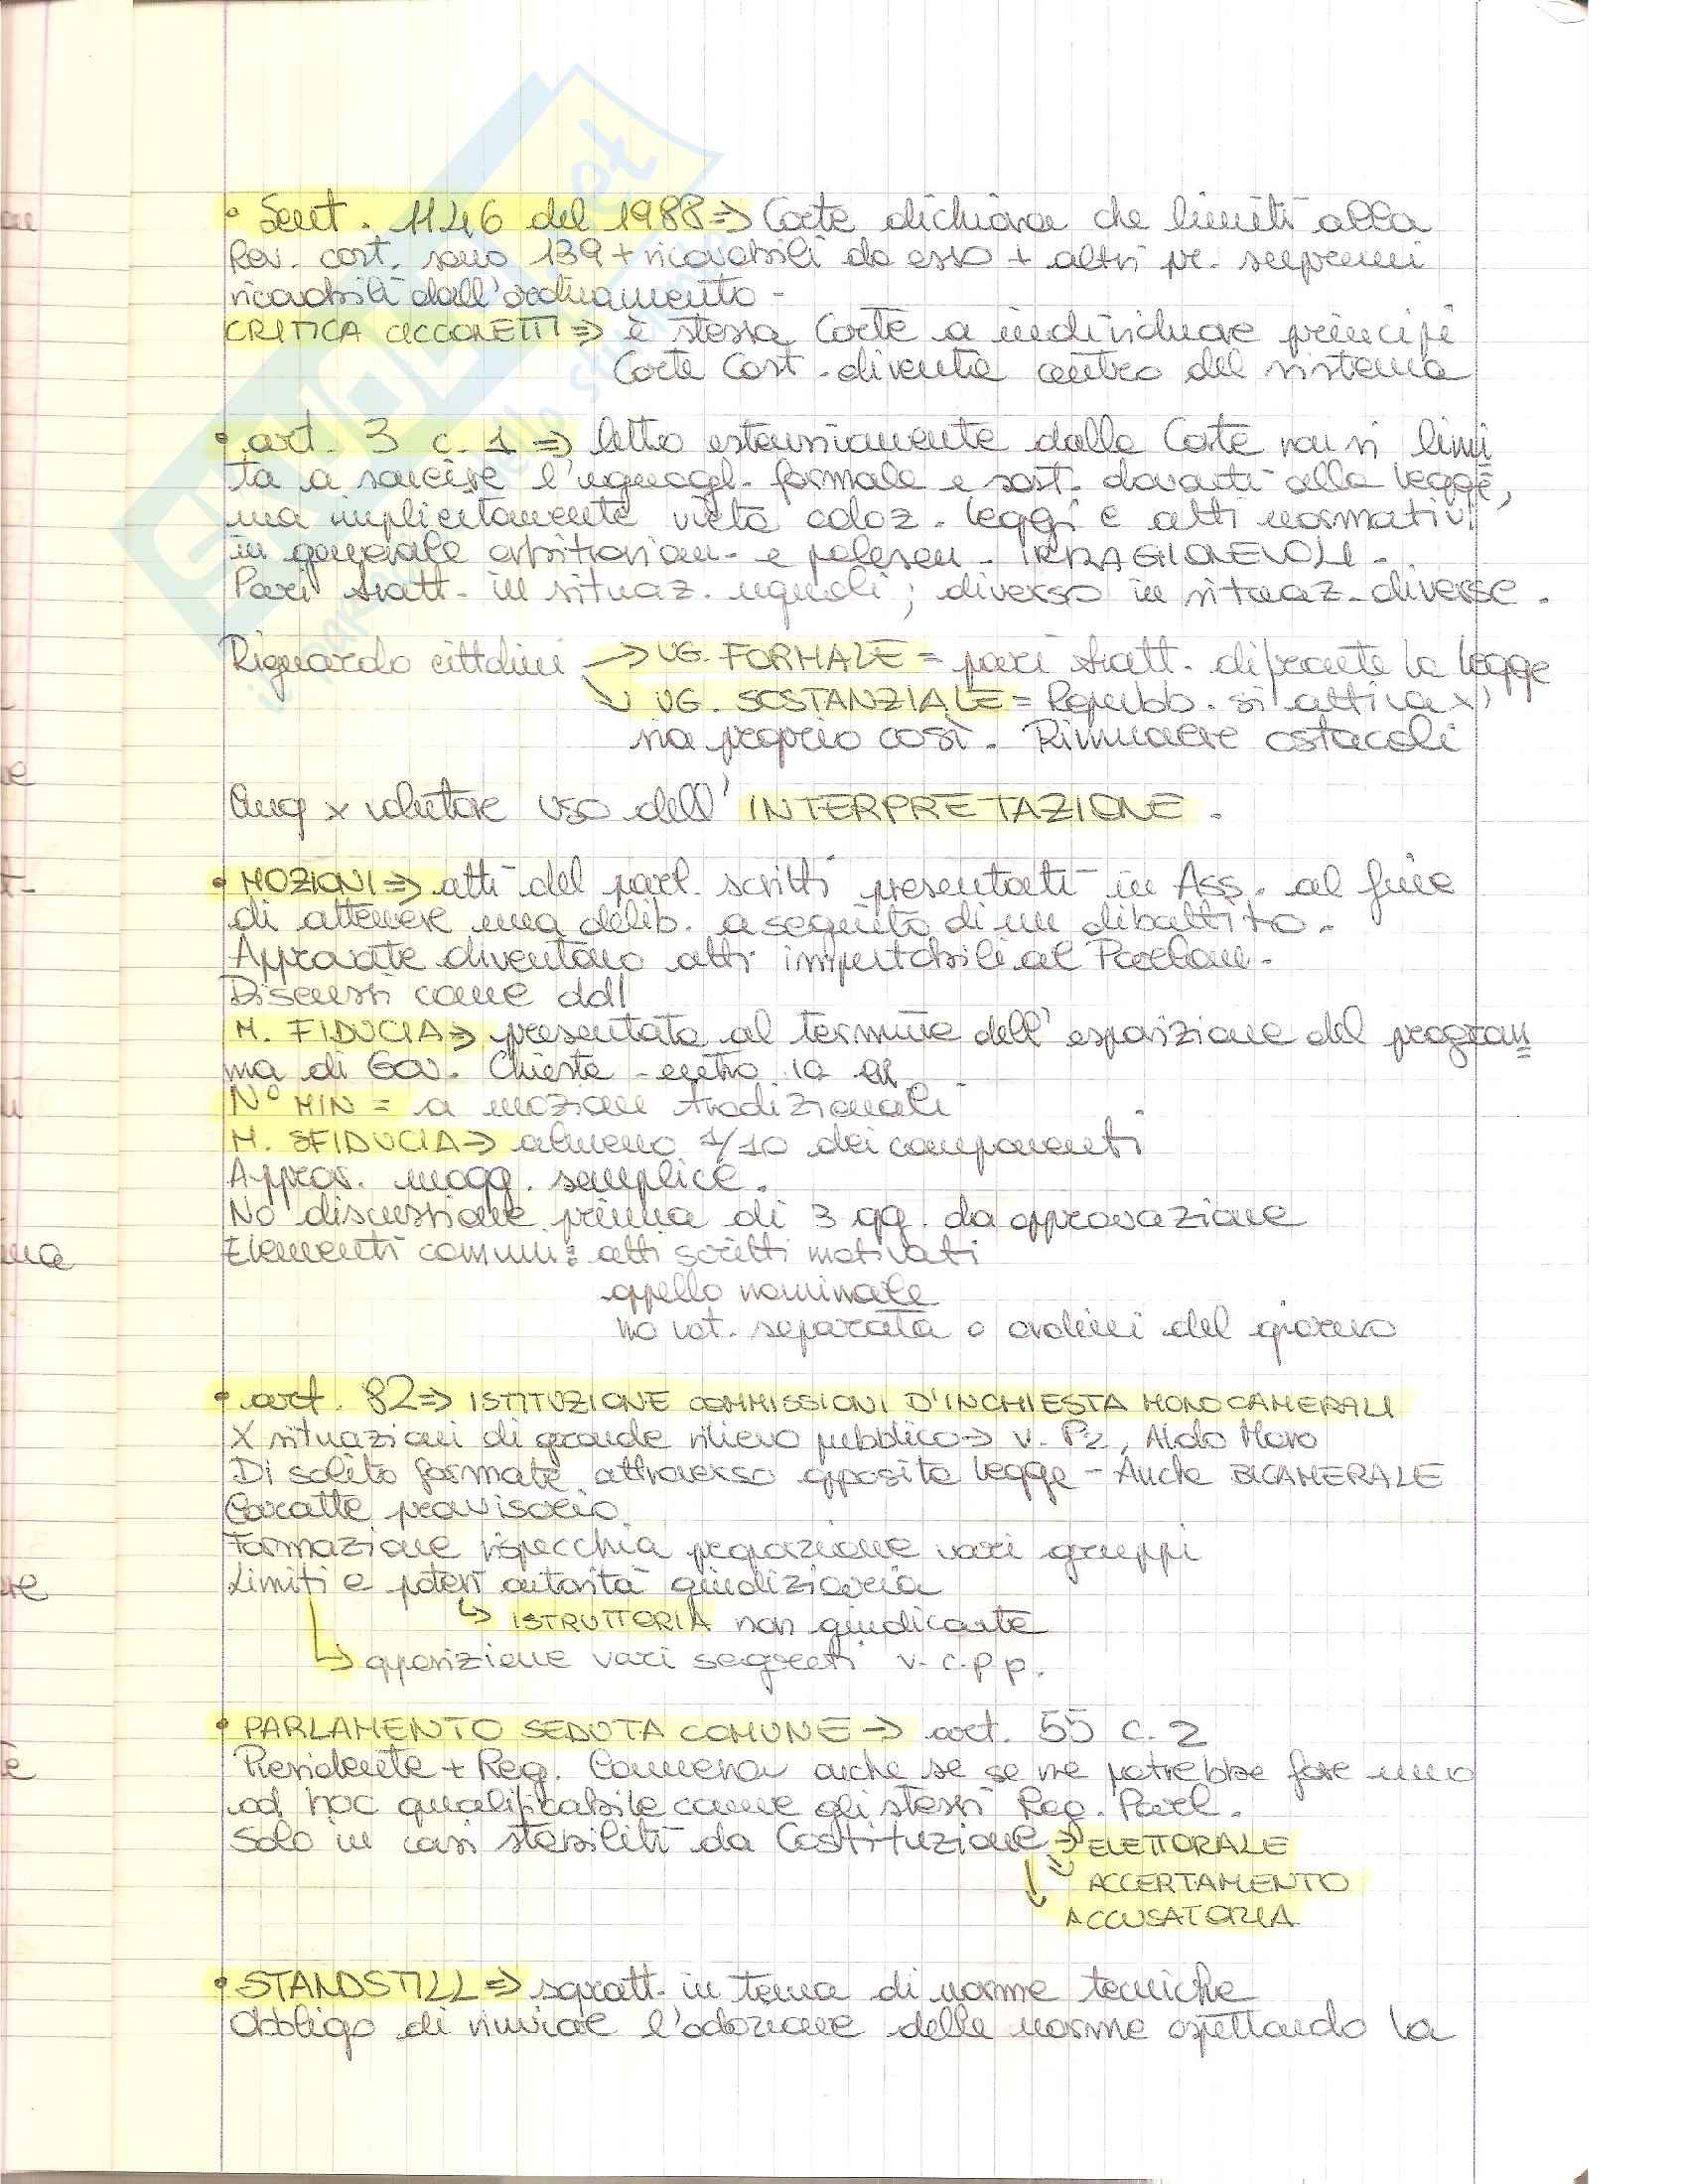 • Sent. 1146 del 1988 => Corte dichiara che limiti alla
Rev. cost. sono 139 + ricavabili da esso + altri pr. supremi
ricavabili dall'ordinamento -
CRITICA => è stessa Corte a individuare principi
Corte Cost. diventa centro del sistema
• art. 3 c. 1 => letto estensivamente dalla Corte non si limi
ta a sancire l'uguagl. formale e sost. davanti alla legge,
ma implicitamente vieta adoz. leggi e atti normativi
in generale arbitrariam. e palesem. IRRAGIONEVOLI.
Pari tratt. in situaz. uguali; diverso in situaz. diverse.
Riguardo cittadini → UG. FORMALE = pari tratt. difronte la legge
↘ UG. SOSTANZIALE = Repubb. si attiva x'
sia proprio così. Rimuovere ostacoli
x valutare uso dell'INTERPRETAZIONE.
• MOZIONI => atti del parl. scritti presentati in Ass. al fine
di ottenere una delib. a seguito di un dibattito.
Approvate diventano atti imputabili al Parlam.
Discussi come ddl
M. FIDUCIA => presentata al termine dell'esposizione del program
ma di Gov. Chiesta entro 10
N° MIN = a mozioni tradizionali
M. SFIDUCIA => almeno 1/10 dei componenti
Approv. magg. semplice.
No discussione prima di 3 gg. da approvazione
Elementi comuni: atti scritti motivati
appello nominale
no vot. separata o ordini del giorno
• art. 82 => ISTITUZIONE COMMISSIONI D'INCHIESTA MONOCAMERALI
X situazioni di grande rilievo pubblico → v. P2, Aldo Moro
Di solito formate attraverso apposita legge - Anche BICAMERALE
Caratte provvisorio.
Formazione rispecchia vari gruppi
Limiti e poteri autorità giudiziaria
↳ ISTRUTTORIA non giudicante
↳ apposizione vari segreti v. c.p.p.
• PARLAMENTO SEDUTA COMUNE → art. 55 c. 2
Presidente + Reg. Camera anche se se ne potrebbe fare uno
ad hoc qualificabile come gli stessi Reg. Parl.
Solo in casi stabiliti da Costituzione → ELETTORALE
ACCERTAMENTO
ACCUSATORIA
• STANDSTILL => sopratt. in tema di norme tecniche
Obbligo di rinviare l'adozione delle norme aspettando la